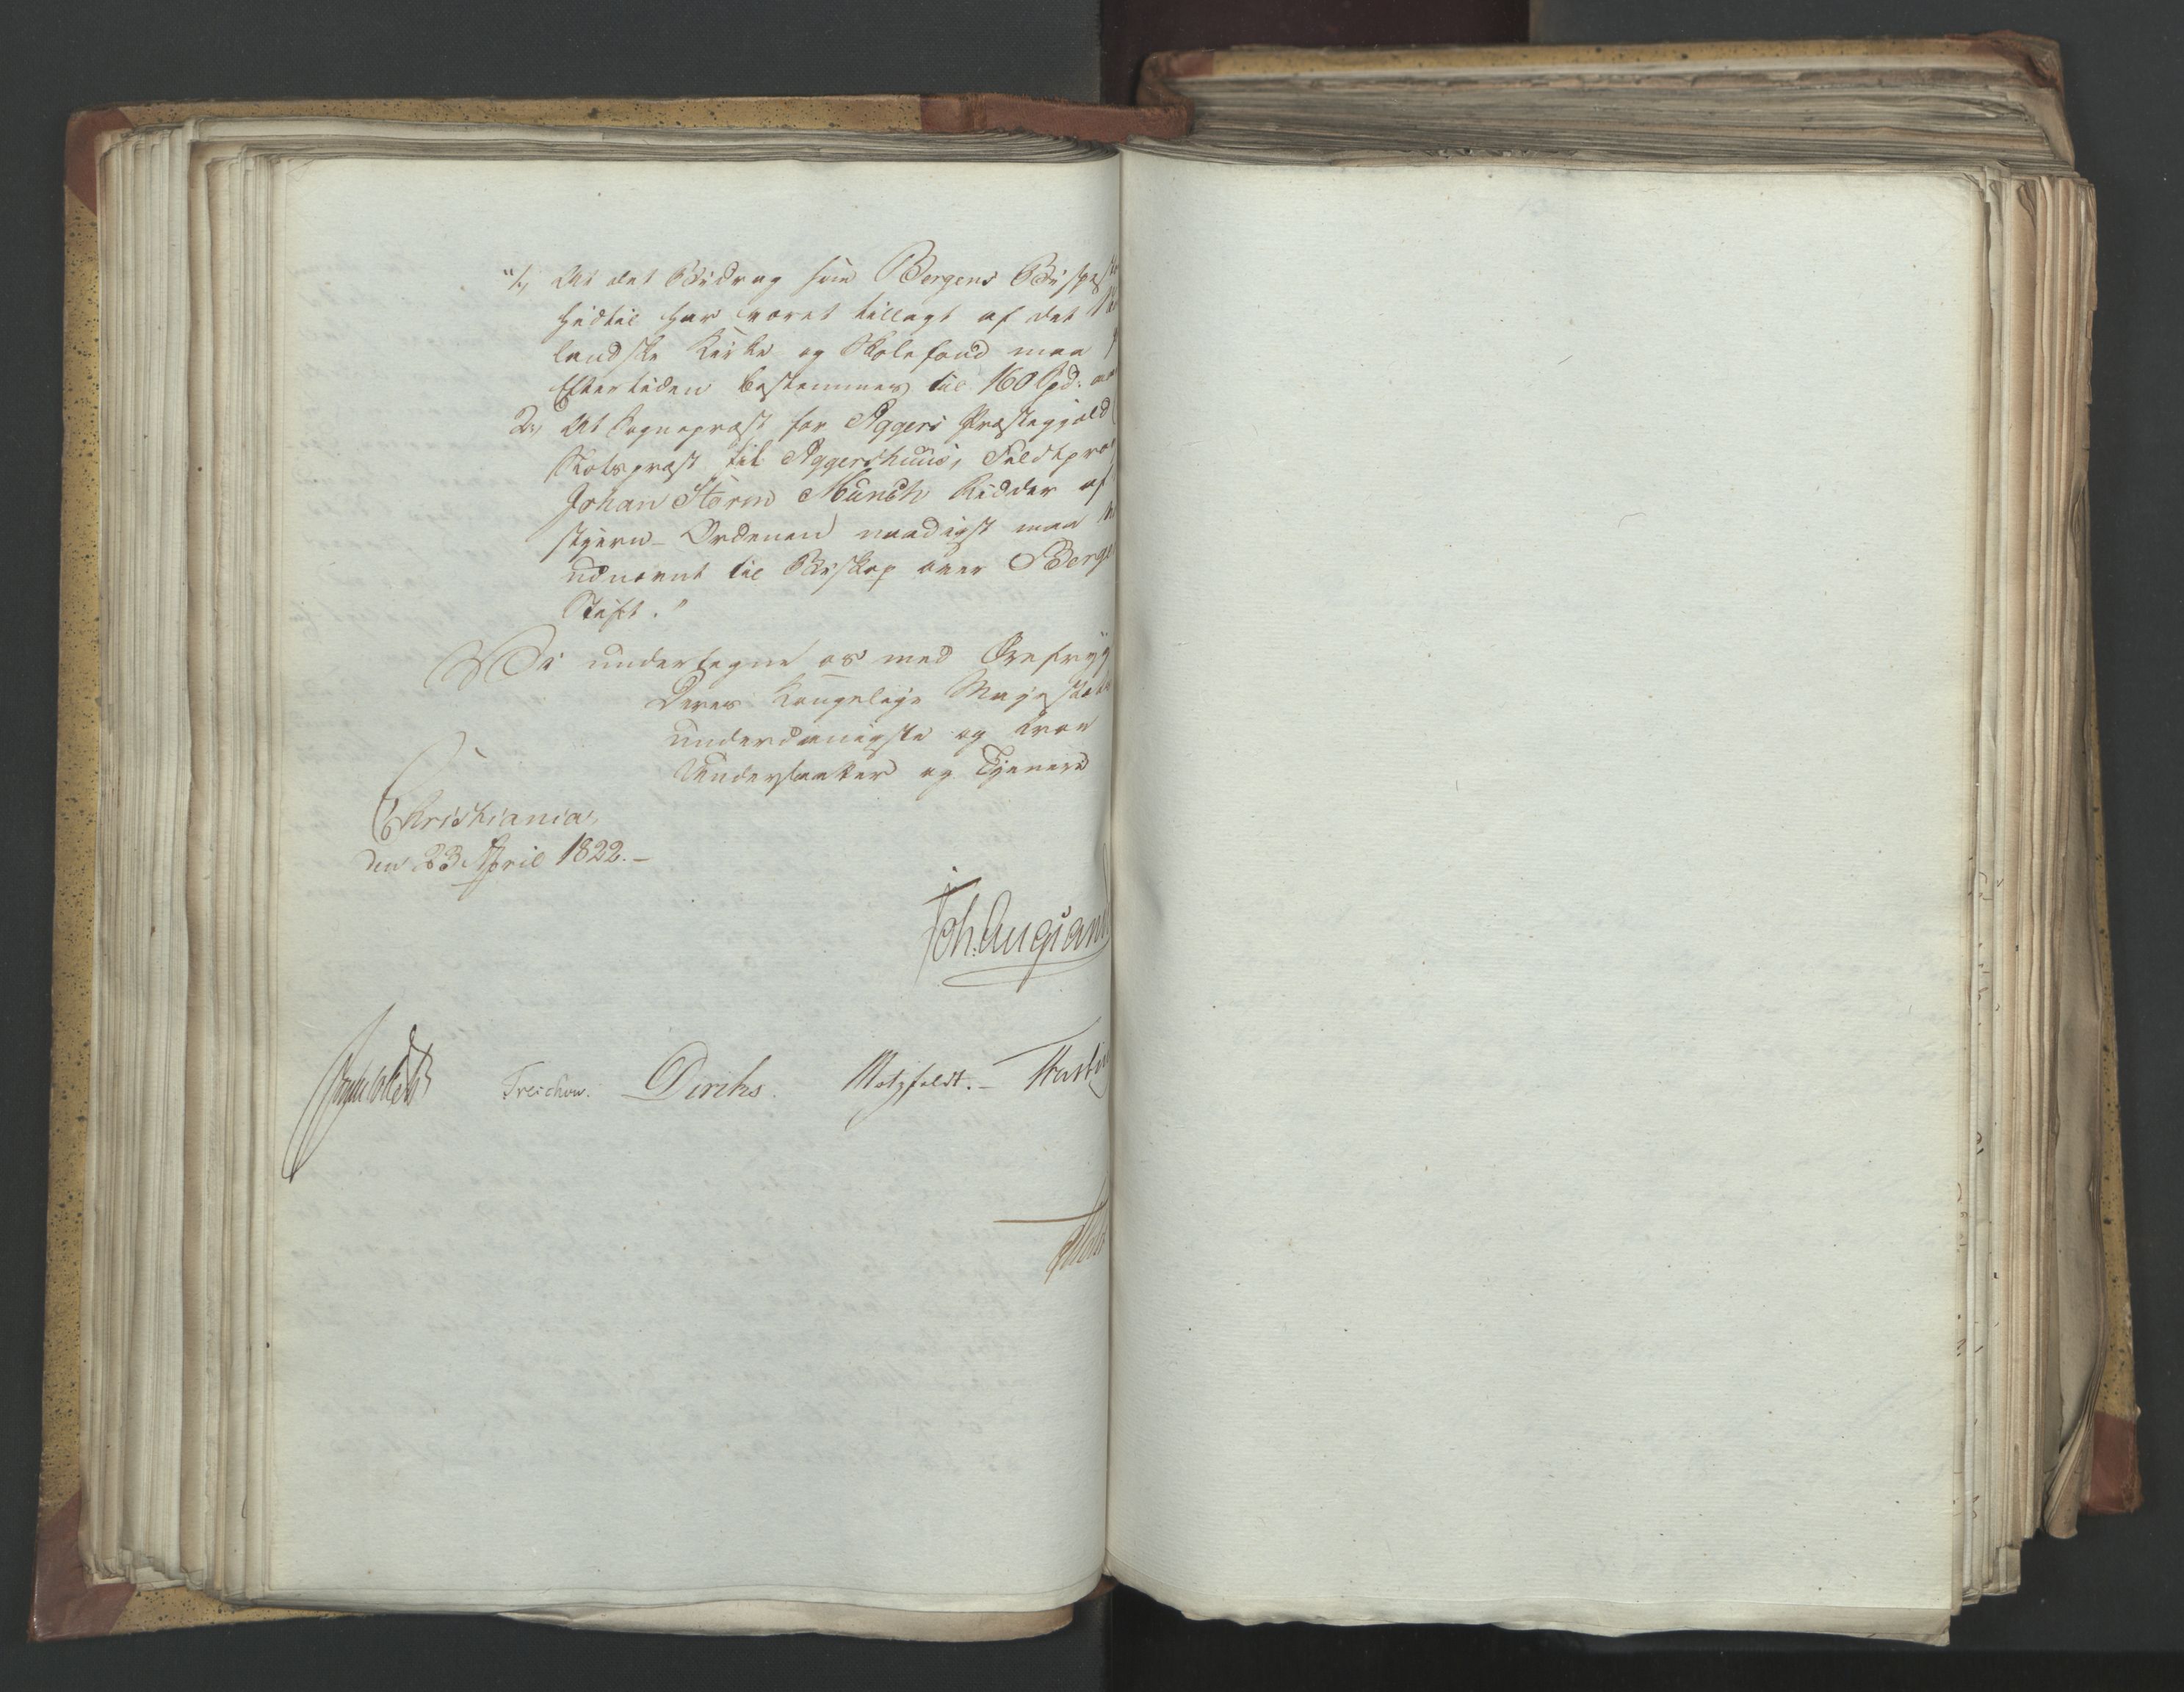 "1, At det Bidrag som Bergens Bispe
hidtil har været tillagt af det
landske Kirke og Skolefond maa
Eftertiden bestemmes til 160 Spd:
2, At Sognepræst for Aggers Præstegjeld
Slotspræst til Aggershuus, Feldtpro
Johan Storm Munch Ridder af
stjern-Ordenen naadigst maa
udnævnt til Biskop over Berge
Stift."
Vi undertegne os med Ærefryg
Deres Kongelige Majestæts
underdanigste og troe
Undersaatter og Tjenere
Christiania,
den 23 April 1822.-
Joh. Aug. Sand
Treschow. Diriks. Motzfeldt.-